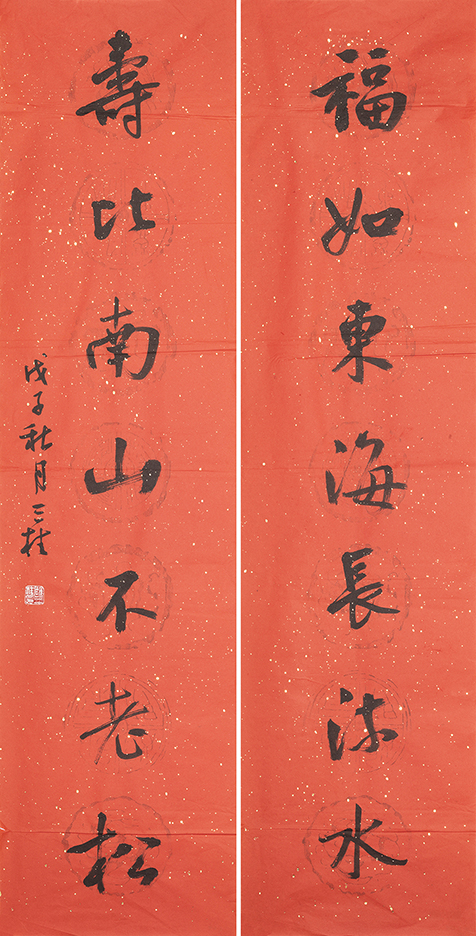 福如東海長流水
壽比南山不老松
戊子秋月三桂